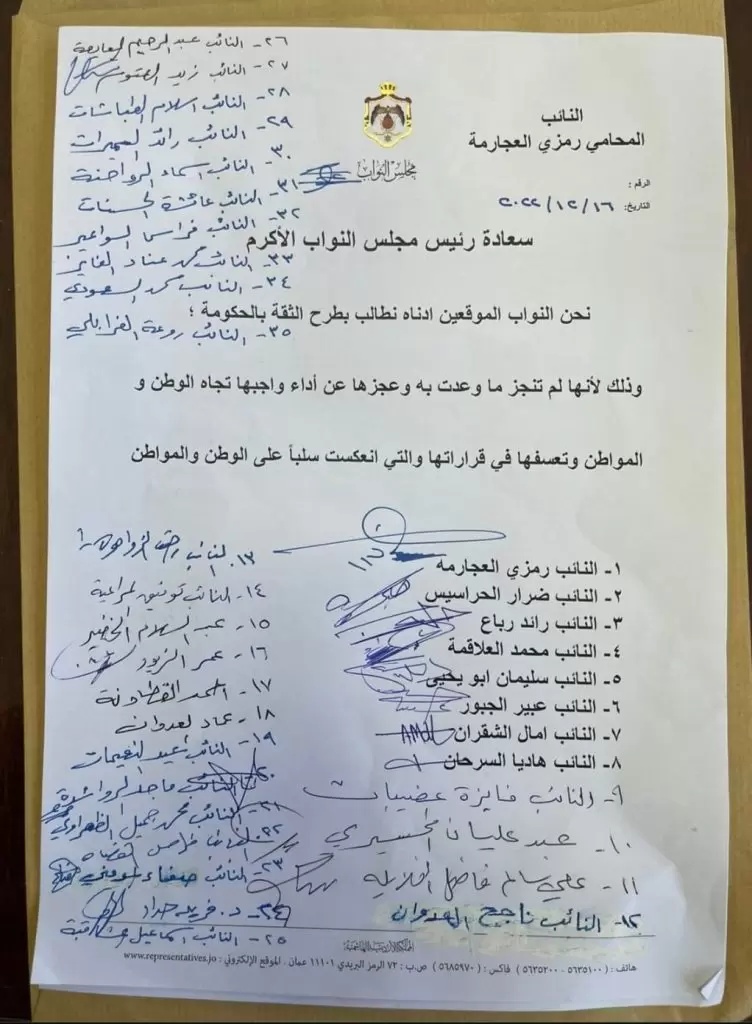 النائب
المحامي رمزي العجارمة
مجلس النواب
الرقم :
التاريخ: ٢٠٢٢/١٢/١٦
سعادة رئيس مجلس النواب الأكرم
نحن النواب الموقعين ادناه نطالب بطرح الثقة بالحكومة ؛
وذلك لأنها لم تنجز ما وعدت به وعجزها عن أداء واجبها تجاه الوطن و
المواطن وتعسفها في قراراتها والتي انعكست سلباً على الوطن والمواطن
١- النائب رمزي العجارمه
٢- النائب ضرار الحراسيس
٣- النائب رائد رباع
٤- النائب محمد العلاقمة
٥- النائب سليمان ابو يحيى
٦- النائب عبير الجبور
٧- النائب امال الشقران
٨- النائب هاديا السرحان
٩- النائب فايزة عضيبات
١٠- عبد عليان
١١- علي سالم فاضل
١٢- النائب ناجح العدوان
١٣- النائب
١٤- النائب توفيق المراعية
١٥- عبد السلام الخضير
١٦- عمر الزيود
١٧- احمد القطاونة
١٨- عماد العدوان
١٩- النائب النعيمات
٢٠- النائب ماجد الرواشدة
٢١- النائب محمد جميل الظهراوي
٢٢- القضاه
٢٣- النائب صفاء المومني
٢٤- د. فريد حداد
٢٥- النائب اسماعيل
٢٦- النائب عبد الرحيم المعايعة
٢٧- النائب زيد العتوم
٢٨- النائب اسلام الطباشات
٢٩- النائب رائد السميرات
٣٠- النائب اسماء الرواحنة
٣١- النائب عائشة الحسنات
٣٢- النائب فراس السواعير
٣٣- النائب محمد عناد الفايز
٣٤- النائب محمد السعودي
٣٥- النائب روعة الغرابلي
المملكة الأردنية الهاشمية
هاتف : ( ٥٦٣٥١٠٠ - ٥٦٣٥٢٠٠ ) فاكس : ( ٥٦٨٥٩٧٠ ) ص.ب : ٧٢ الرمز البريدي ١١١٠١ عمان . الموقع الإلكتروني : www.representatives.jo